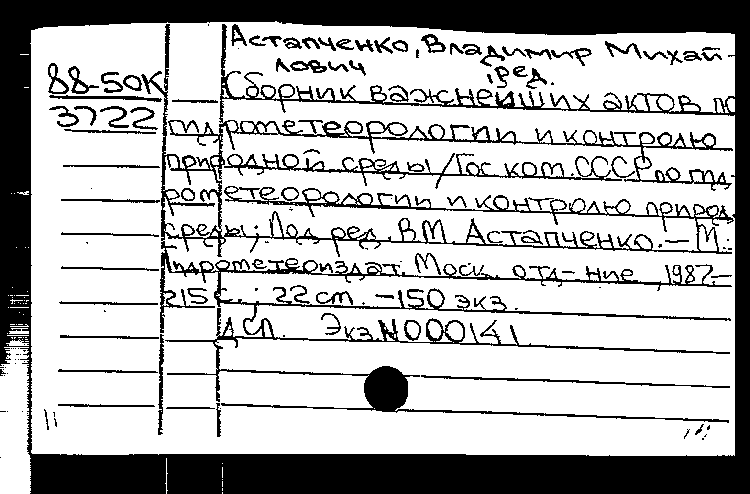 Астапченко, Владимир Михай-
лович, ред.
88-50К Сборник важнейших актов по
3722 гидрометеорологии и контролю
природной среды / Гос ком. СССР по гид-
рометеорологии и контролю природ.
среды; Под ред. В.М. Астапченко. — М.:
Гидрометеоиздат. Моск. отд-ние, 1987.—
215 с.; 22 см. — 150 экз.
ДСП. Экз. N 000141